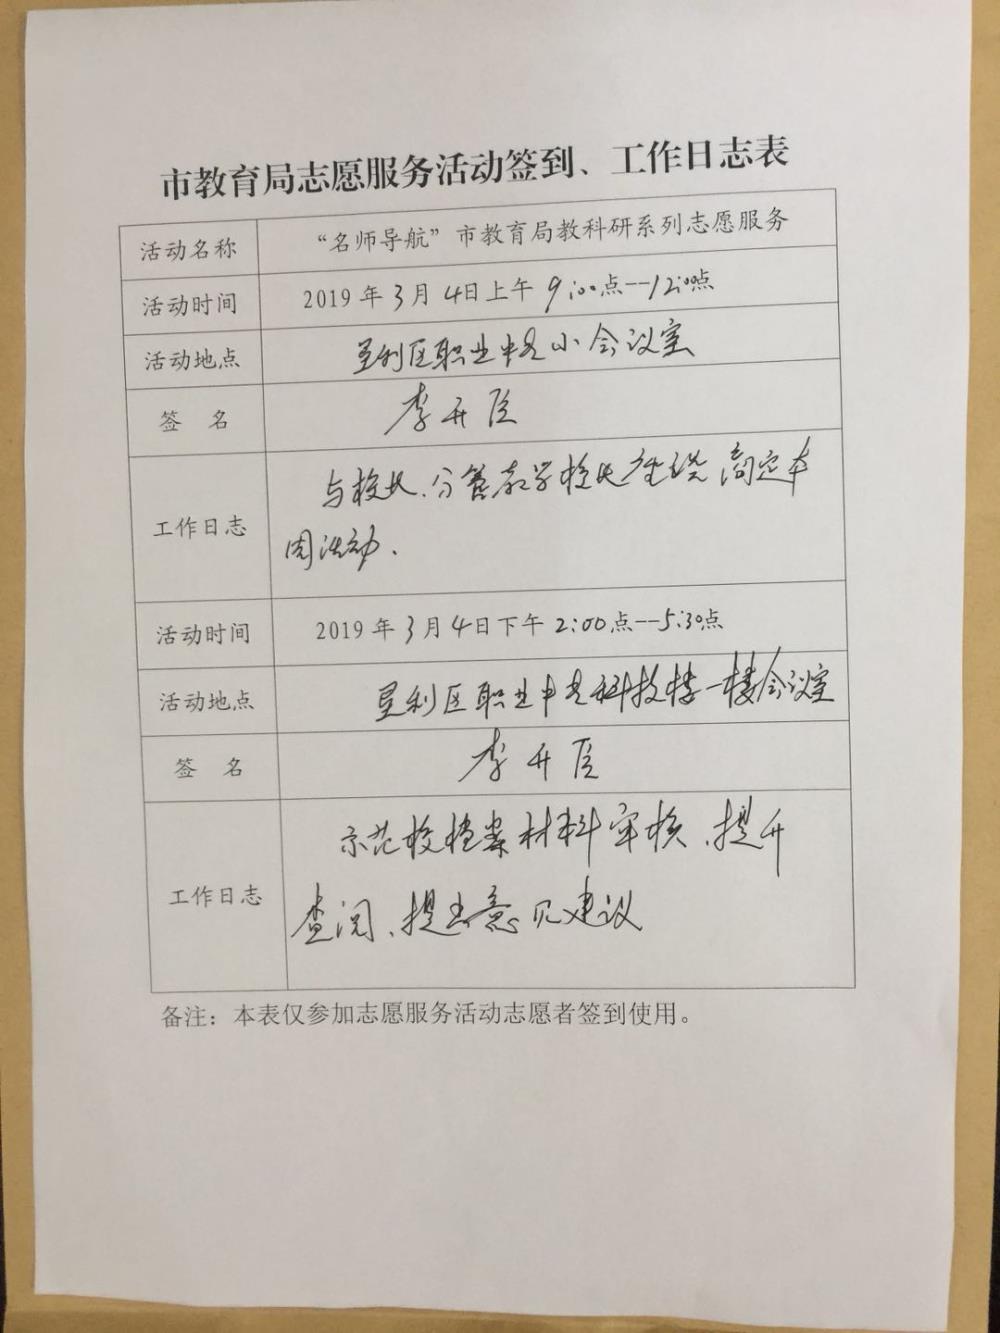 市教育局志愿服务活动签到、工作日志表
活动名称 “名师导航”市教育局教科研系列志愿服务
活动时间 2019年3月4日上午9:00点--12:00点
活动地点 垦利区职业中专小会议室
签 名 李开臣
工作日志 与校长、分管教学校长 商定本
周活动.
活动时间 2019年3月4日下午2:00点--5:30点
活动地点 垦利区职业中专科技楼一楼会议室
签 名 李开臣
工作日志 示范校档案材料审核、提升
查阅、提出意见建议
备注：本表仅参加志愿服务活动志愿者签到使用。